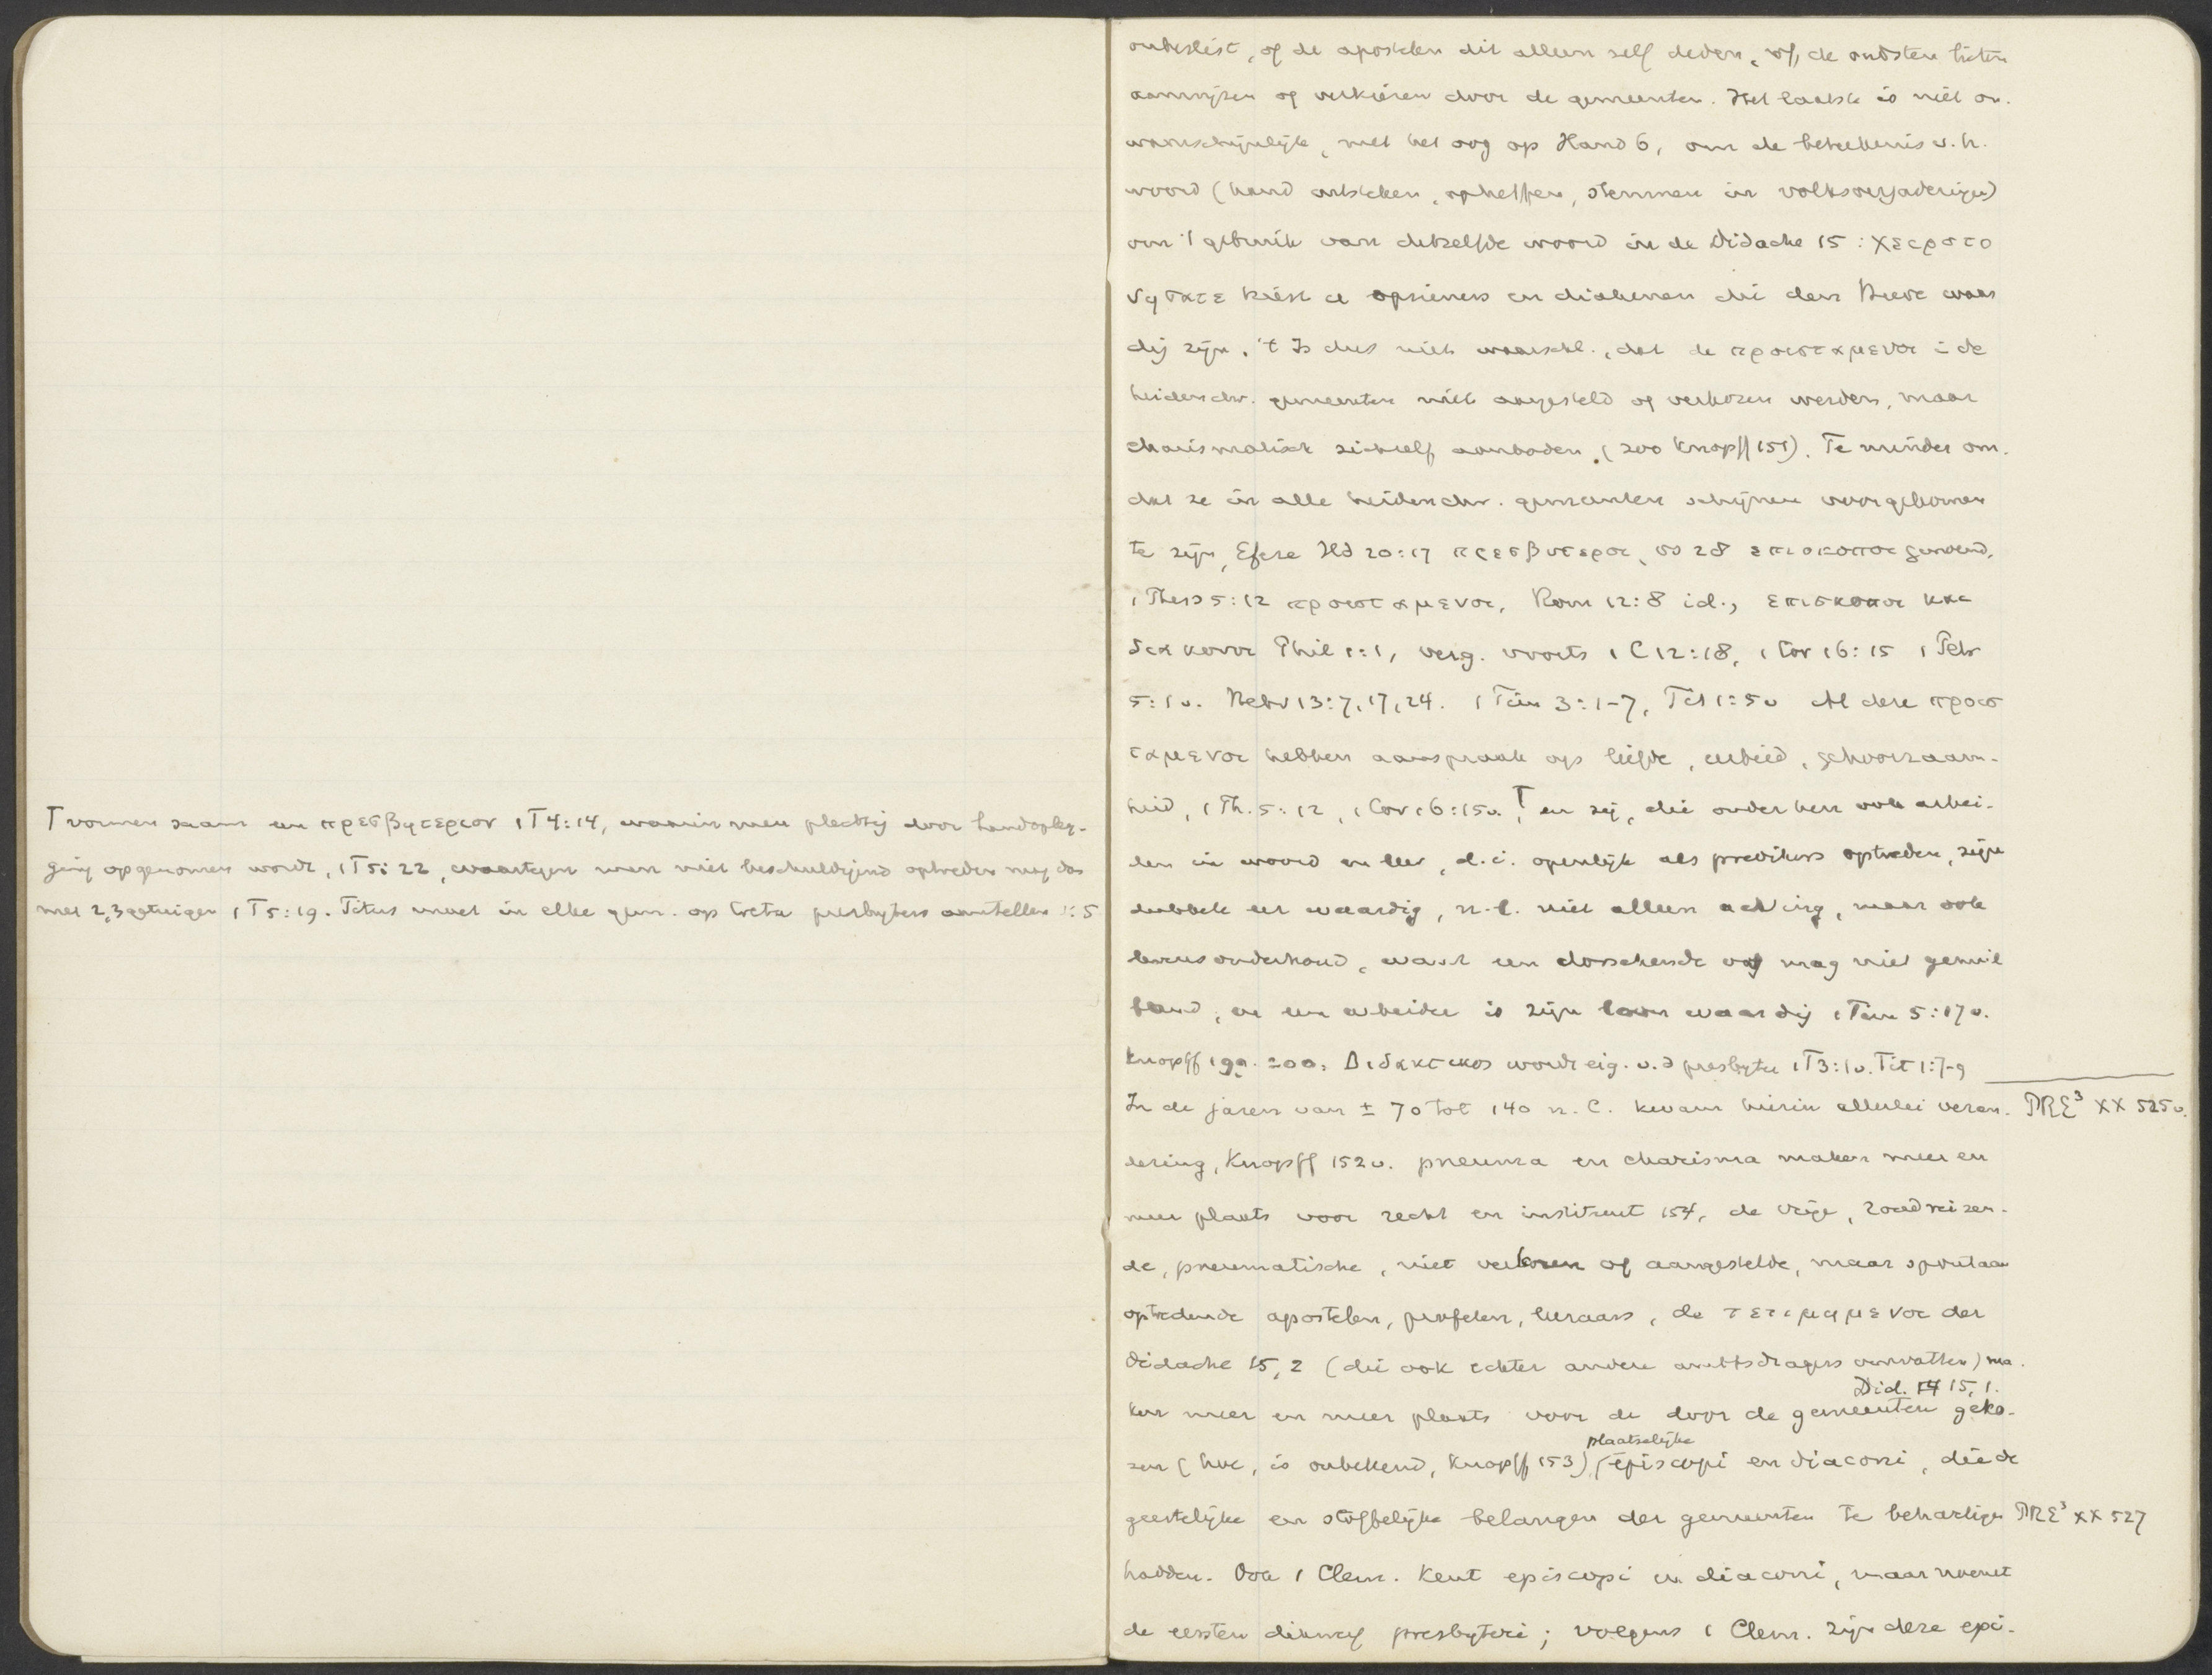 Ꞁ vormen saam een πρεσβυτεριον 1 T 4:14, waarin men plechtig door handopleg-
ging opgenomen wordt, 1 T 5:22, waartegen men niet beschuldigend optreden mag dan
met 2, 3 getuigen 1 T 5:19. Titus moet in elke gem. op Creta presbyters aanstellen 1:5
onbeslist, of de apostelen dit alleen zelf deden, of, de oudsten lieten
aanwijzen of verkiezen door de gemeenten. Het laatste is niet on-
waarschijnlijk, met het oog op Hand 6, om de beteekenis v. h.
woord (hand uitsteken, opheffen, stemmen in volksvergaderingen)
om 't gebruik van hetzelfde woord in de Didache 15: χειροτο
νησατε kiest u opzieners en diakenen die den Heere waar
dig zijn. 't Is dus niet waarschl., dat de προισταμενοι i de
heidenchr. gemeenten niet aangesteld of verkozen werden, maar
charismatisch zichzelf aanboden. (zoo Knopff 151). Te minder om-
dat ze in alle heidenchr. gemeenten schijnen voorgekomen
te zijn, Efeze Hd 20:17 πρεσβυτεροι, vs 28 επισκοποι genoemd,
1 Thess 5:12 προισταμενοι, Rom 12:8 id., επισκοποι και
διακονοι Phil 1:1, verg. voorts 1 C 12:28, 1 Cor 16:15 1 Petr
5:1 v. Hebr 13:7, 17, 24. 1 Tim 3:1-7, Tit 1:5 v Al deze προισ
ταμενοι hebben aanspraak op liefde, eerbied, gehoorzaam-
heid, 1 Th. 5:12, 1 Cor 16:15 v. Ꞁ, en zij, die onder hen ook arbei-
den in woord en leer, d. i. openlijk als predikers optreden, zijn
dubbele eer waardig, n.l. niet alleen achting, maar ook
levensonderhoud, want een dorschende os mag niet gemuil
band, en een arbeider is zijn loon waardig 1 Tim 5:17 v.
Knopff 199. 200. Διδακτικος wordt eig. v. d presbyter 1 T 3:1 v. Tit 1:7-9
In de jaren van ± 70 tot 140 n. C. kwam hierin allerlei veran- PRE³ XX 525 v.
dering, Knopff 152 v. pneuma en charisma maken meer en
meer plaats voor recht en instituut 154, de vrije, rondreizen-
de, pneumatische, niet verkoren of aangestelde, maar spontaan
optredende apostelen, profeten, leeraars, de τετιμημενοι der
Didache 15, 2 (die ook echter andere ambtsdragers omvatten) ma-
Did. 14 15, 1.
ken meer en meer plaats voor de door de gemeenten geko-
plaatselijke
zen (hoe, is onbekend, Knopff 153) episcopi en diaconi, die de
geestelijke en stoffelijke belangen der gemeenten te behartigen PRE³ XX 527
hadden. Ook 1 Clem. kent episcopi en diaconi, maar noemt
de eersten dikwerf presbyteri; volgens 1 Clem. zijn deze epi-